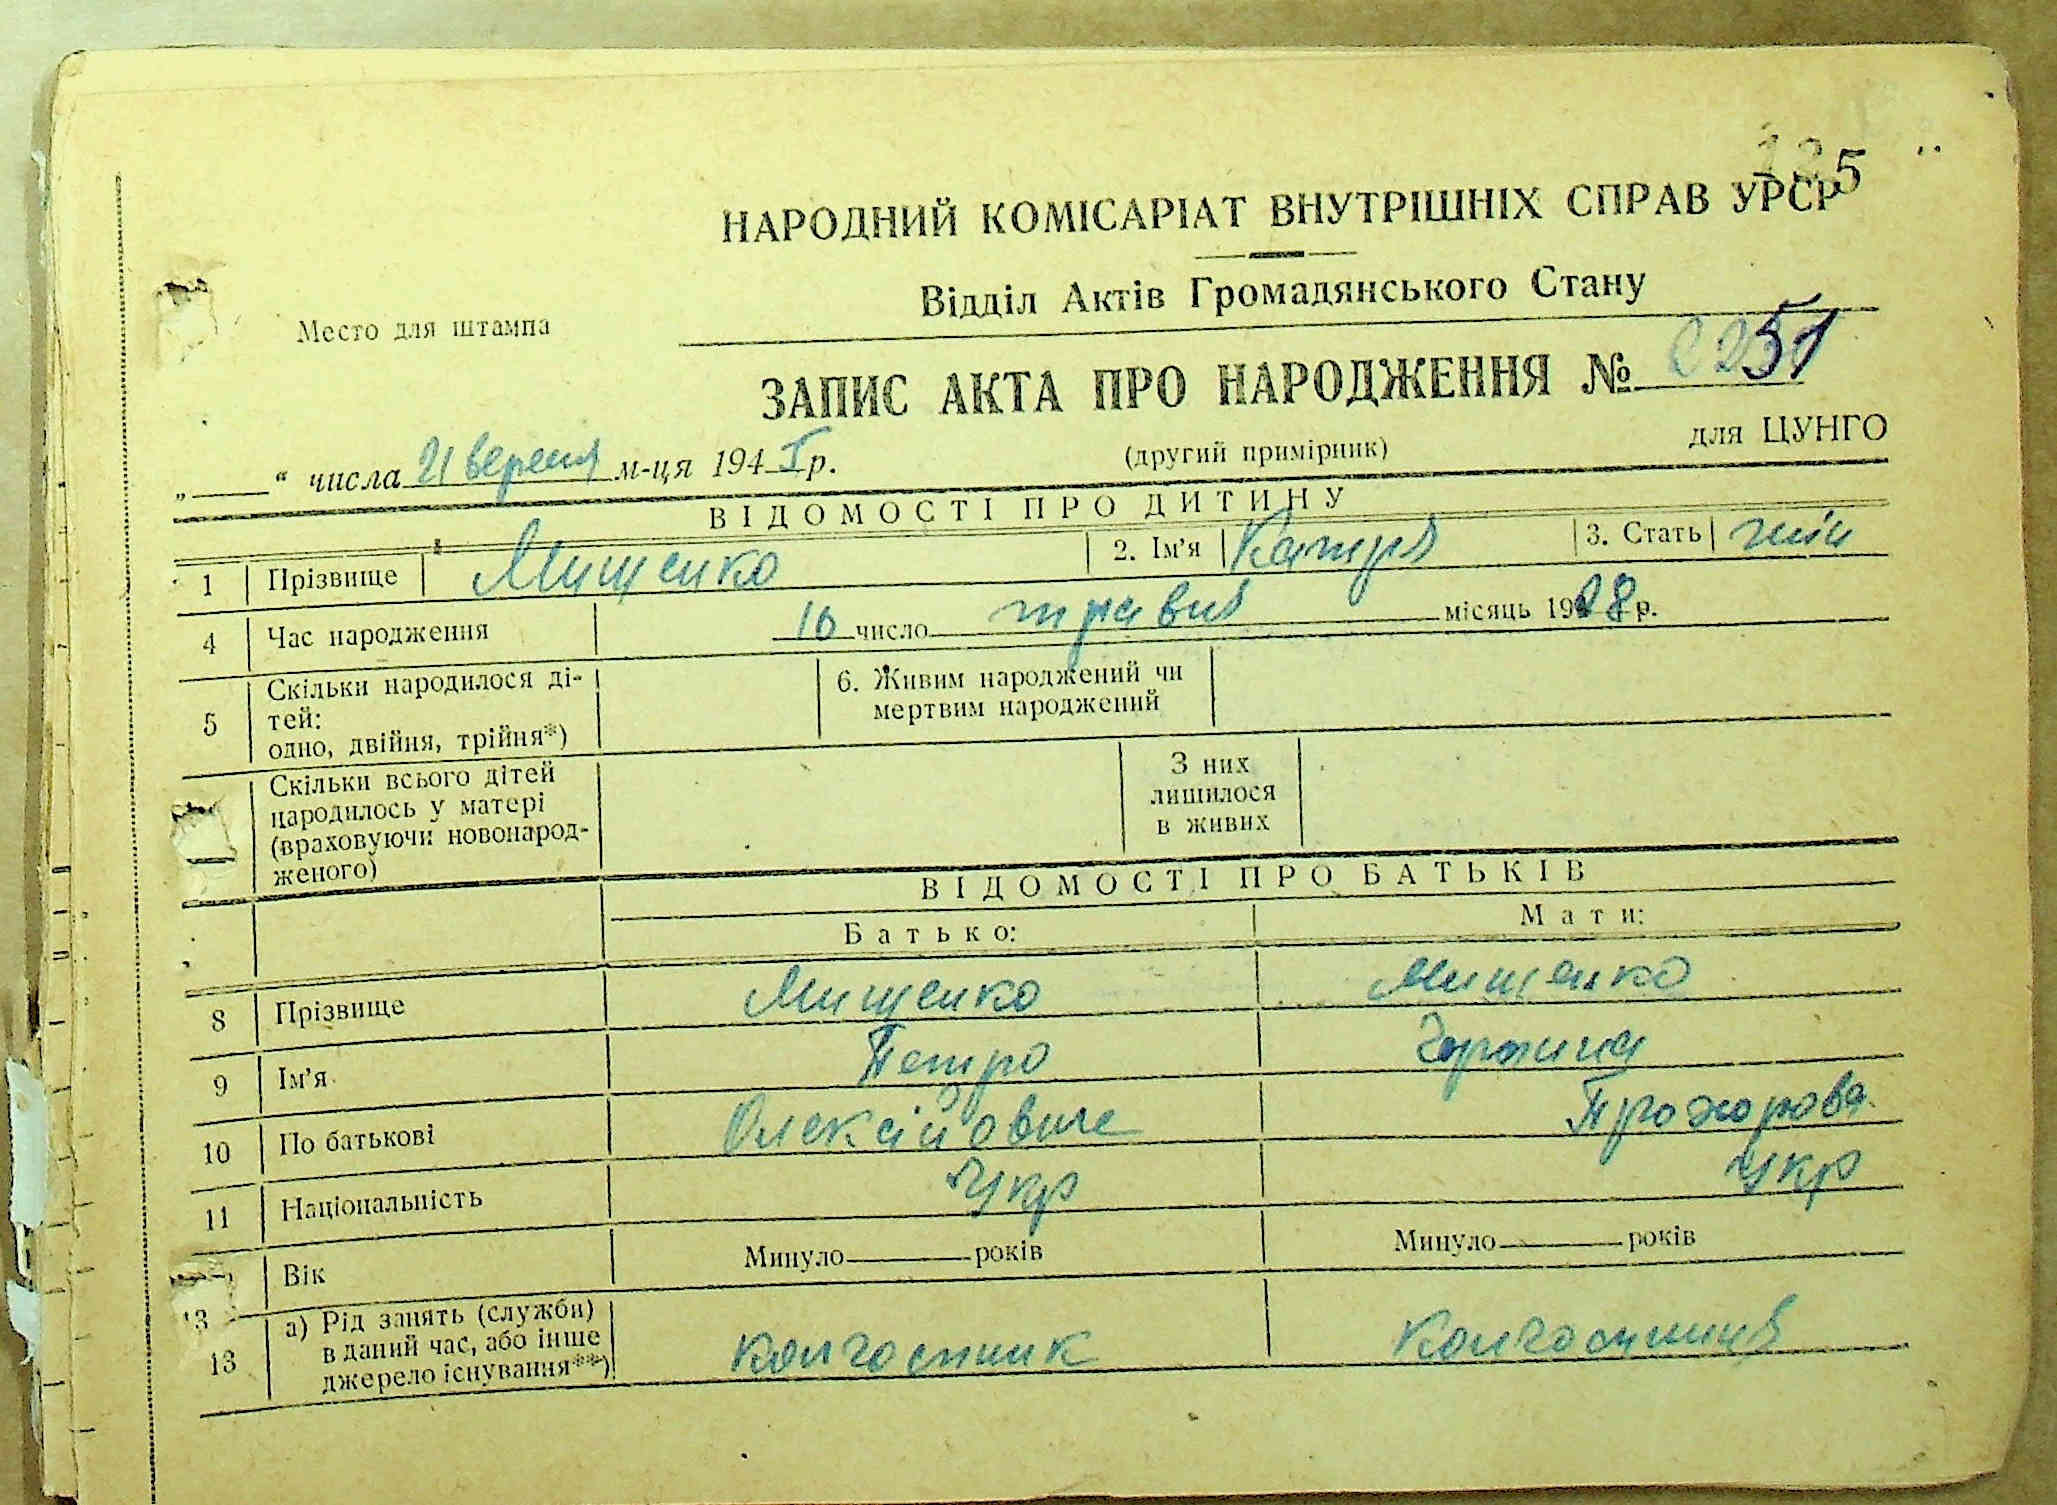 125
НАРОДНИЙ КОМІСАРІАТ ВНУТРІШНІХ СПРАВ УРСР
Відділ Актів Громадянського Стану
Место для штампа
ЗАПИС АКТА ПРО НАРОДЖЕННЯ № 2251
(другий примірник) для ЦУНГО
„ “ числа 21 вересня м-ця 194 1 р.
ВІДОМОСТІ ПРО ДИТИНУ
1 Прізвище Мищенко 2. Ім'я Катря 3. Стать жін
4 Час народження 10 число травня місяць 1928 р.
5 Скільки народилося ді-
тей:
одно, двійня, трійня*)
6. Живим народжений чи
мертвим народжений
Скільки всього дітей
народилось у матері
(враховуючи новонарод-
женого)
З них
лишилося
в живих
ВІДОМОСТІ ПРО БАТЬКІВ
Батько: Мати:
8 Прізвище Мищенко Мищенко
9 Ім'я Петро
10 По батькові Олексійович Прохорова
11 Національність Укр Укр
Вік Минуло років Минуло років
13
13 а) Рід занять (служби)
в даний час, або інше
джерело існування**)
колгоспник колгоспниця